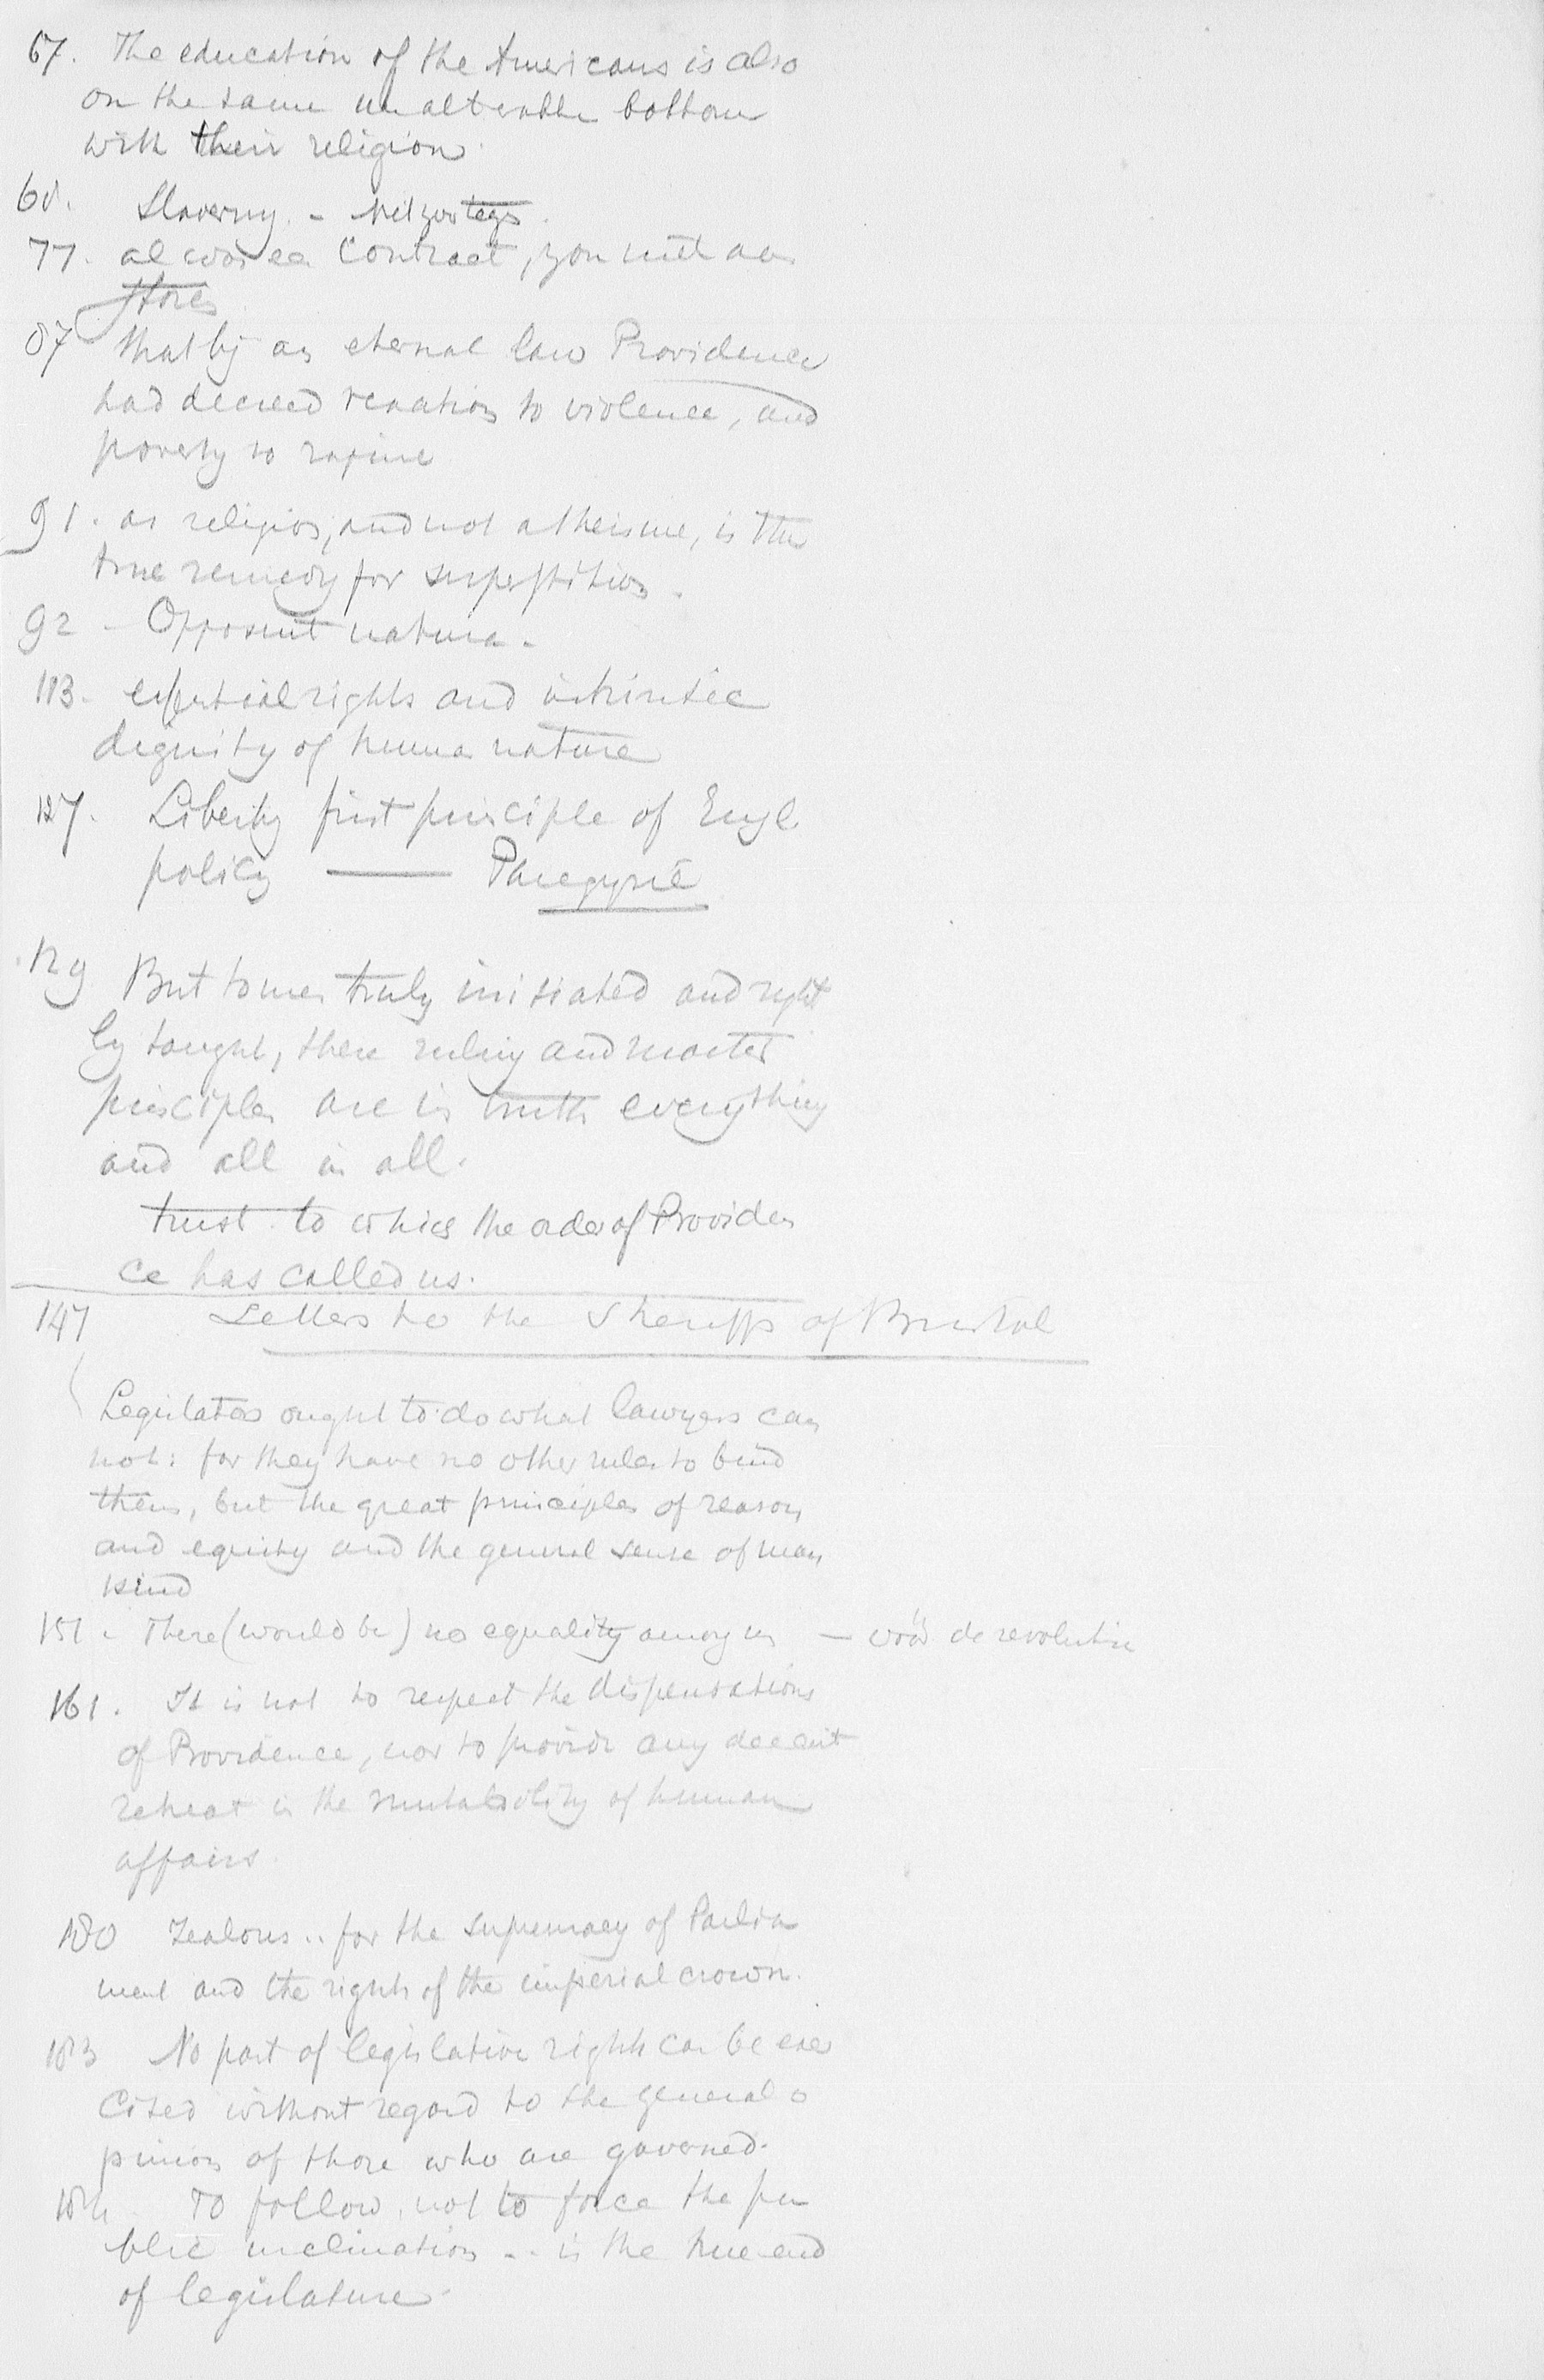 67. The education of the Americans is also
on the same unalterable bottom
with their religion.
68. Slaverny. -
77. al was ea Contract, you
87 that by an eternal law Providence
had decreed vexation to violence, and
poverty to rapine
91. as religion, and not atheisme, is the
true remedy for superstition.
92 - Opposuit natura.
113. essential rights and intrinsic
dignity of human nature
127. Liberty first principle of Engl.
policy —
129 But to men truly initiated and right
ly taught, these ruling and master
principles are in truth everything
and all in all.
trust to which the order of Providen
ce has called us.
147 Letter to the Sheriffs of Bristol
Legislators ought to do what lawyers can
not: for they have no other rules to bind
them, but the great principles of reason
and equity and the general sense of man
kind
151. There (would be) no equality among us — vóór de revolutie
161. It is not to respect the dispensations
of Providence, nor to provide any decent
retreat in the mutability of human
affairs.
180 Zealous .. for the supremacy of Parlia
ment and the rights of the imperial crown.
183 No part of legislative rights can be exer
cised without regard to the general o
pinion of those who are governed.
184 To follow, not to force the pu
blic inclination .. is the true end
of legislature.